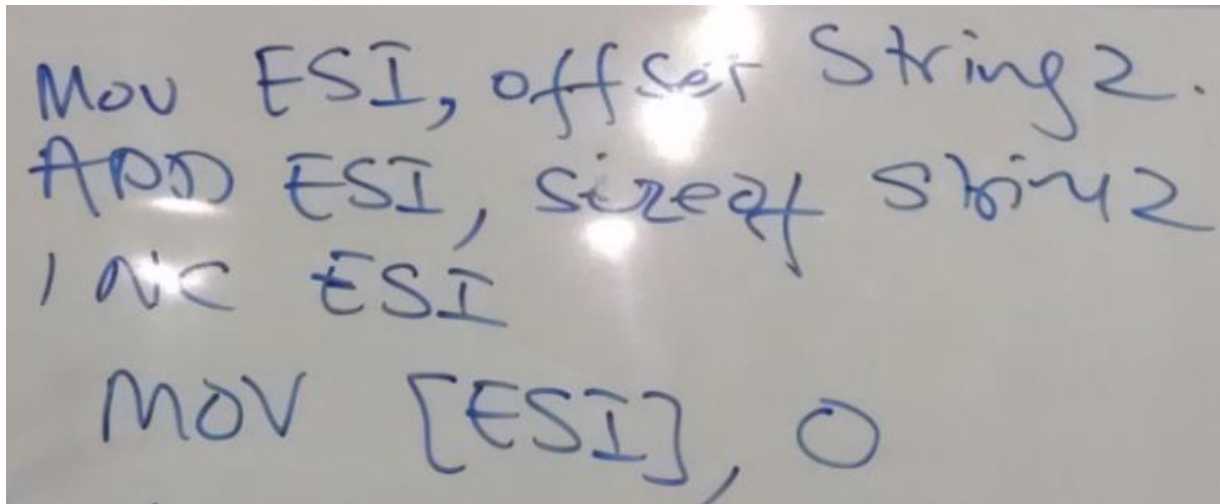 Mov ESI, offset String2.
ADD ESI, sizeof String2
INC ESI
MOV [ESI], 0